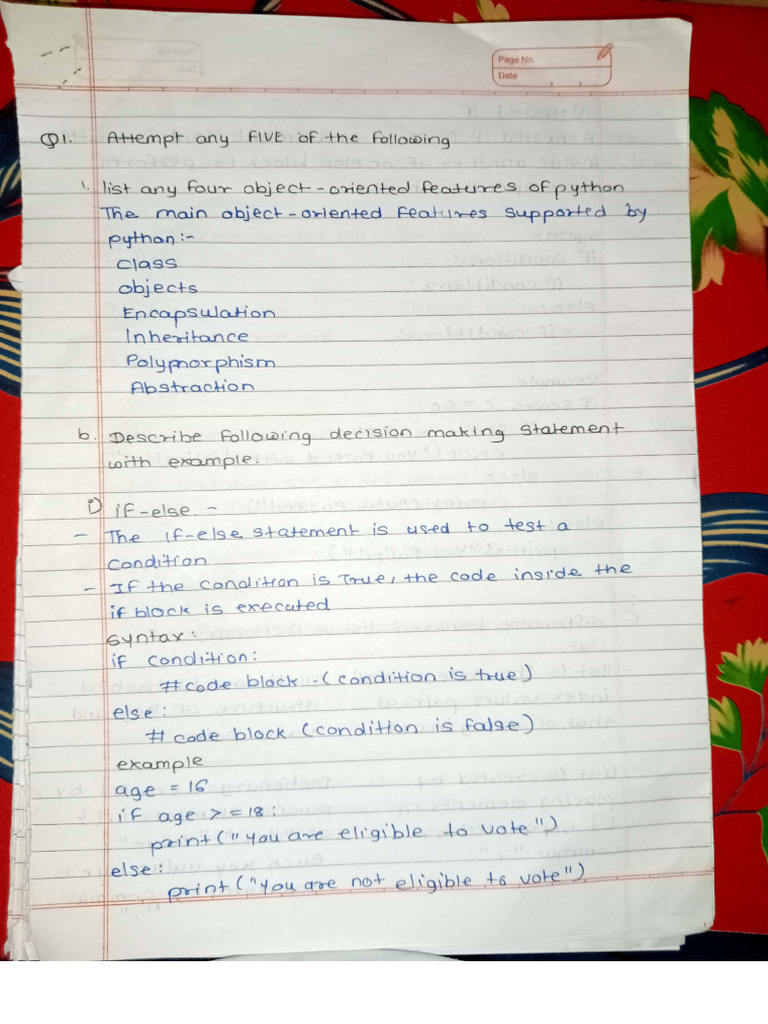 Page No.
Date
Q1. Attempt any FIVE of the following
1. list any four object-oriented features of python
The main object-oriented features supported by
python:-
class
objects
Encapsulation
Inheritance
Polymorphism
Abstraction
b. Describe following decision making statement
with example.
i) if-else -
- The if-else statement is used to test a
condition
- If the condition is True, the code inside the
if block is executed
syntax:
if condition:
#code block -(condition is true)
else:
# code block (condition is false)
example
age = 16
if age >= 18:
print("you are eligible to vote")
else:
print("you are not eligible to vote")